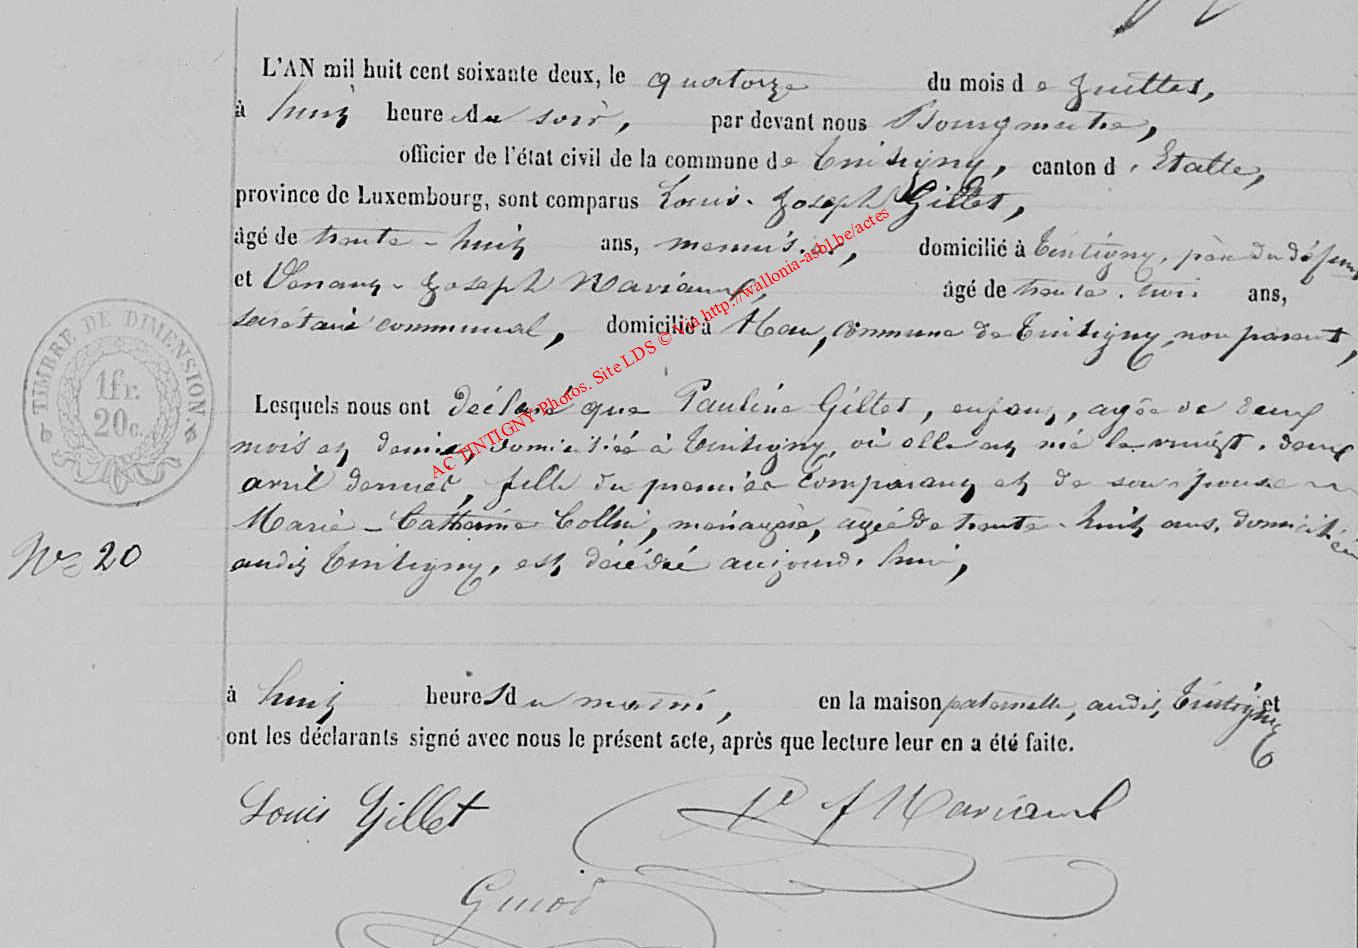 L'AN mil huit cent soixante deux, le quatorze du mois de Juillet,
à huit heures du soir, par devant nous Bourgmestre,
officier de l'état civil de la commune de Tintigny, canton d'Etalle,
province de Luxembourg, sont comparus Louis-Joseph Gillet,
âgé de trente-huit ans, menuisier, domicilié à Tintigny, père du défunt
et Venant-Joseph Maviaux, âgé de trente-trois ans,
secrétaire communal, domicilié à Han, commune de Tintigny, non parent,
Lesquels nous ont déclaré que Pauline Gillet, enfant, agée de deux
mois et demie, domiciliée à Tintigny, où elle est née le vingt-deux
avril dernier, fille du premier comparant et de son épouse
Marie-Catherine Collin, menagère, agée de trente-huit ans, domiciliée
audit Tintigny, est décédée aujourd'hui,
à huit heures du matin, en la maison paternelle, audit Tintigny et
ont les déclarants signé avec nous le présent acte, après que lecture leur en a été faite.
TIMBRE DE DIMENSION
1fr.
20c.
Nº 20
Louis Gillet
AC TINTIGNY Photos. Site LDS © via http://wallonia-asbl.be/actes